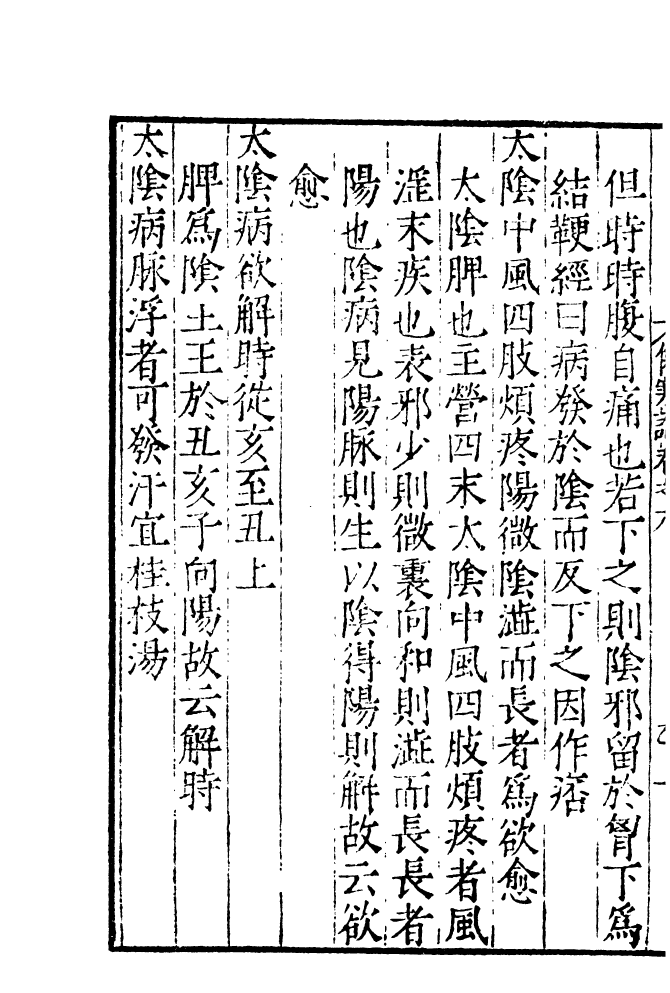 但時時腹自痛也若下之則陰邪留於胷下爲
結鞕經曰病發於陰而反下之因作痞
太陰中風四肢煩疼陽微陰澁而長者爲欲愈
太陰脾也主營四末太陰中風四肢煩疼者風
淫末疾也表邪少則微裏向和則澁而長長者
陽也陰病見陽脉則生以陰得陽則解故云欲
愈
太陰病欲解時從亥至丑上
脾爲陰土王於丑亥子向陽故云解時
太陰病脉浮者可發汗宜桂枝湯